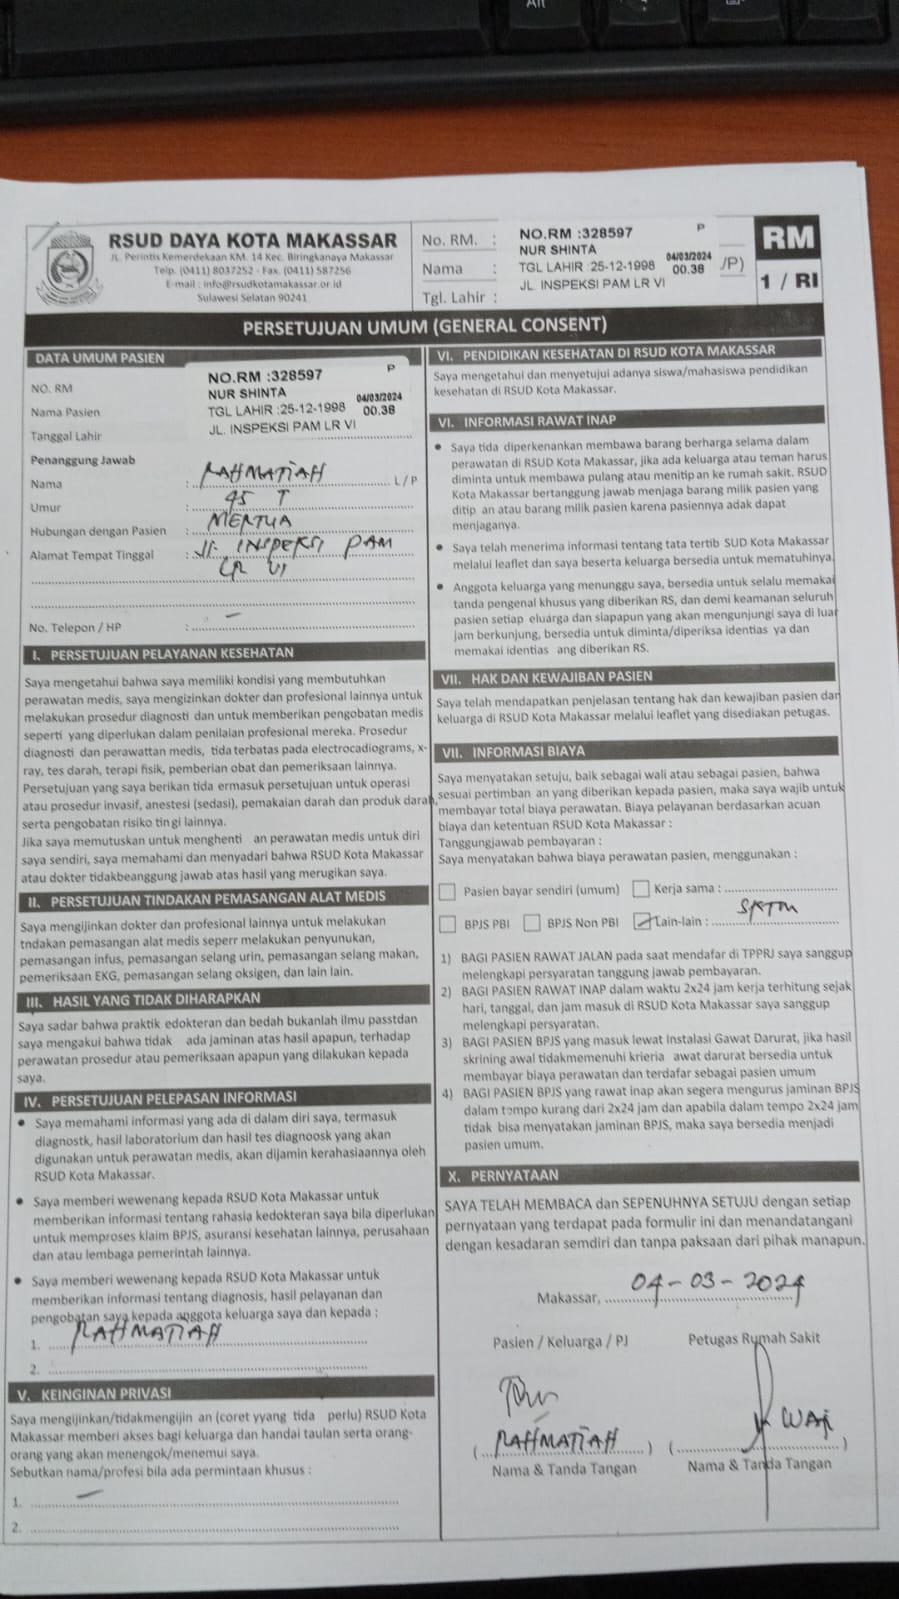 Alt
RSUD DAYA KOTA MAKASSAR
JL. Perintis Kemerdekaan KM. 14 Kec. Biringkanaya Makassar
Telp. (0411) 8037252 - Fax. (0411) 587256
E-mail : info@rsudkotamakassar.or.id
Sulawesi Selatan 90241
No. RM. :
Nama :
Tgl. Lahir :
NO.RM :328597 P
NUR SHINTA
TGL LAHIR :25-12-1998 04/03/2024 00.38
JL. INSPEKSI PAM LR VI
/P)
RM
1 / RI
PERSETUJUAN UMUM (GENERAL CONSENT)
DATA UMUM PASIEN
NO. RM
Nama Pasien
Tanggal Lahir
NO.RM :328597 P
NUR SHINTA
TGL LAHIR :25-12-1998 04/03/2024 00.38
JL. INSPEKSI PAM LR VI
Penanggung Jawab
Nama : RAHMATIAH L / P
Umur : 45 T
Hubungan dengan Pasien : MERTUA
Alamat Tempat Tinggal : Jl. INSPEKSI PAM
LR VI
No. Telepon / HP : -
I. PERSETUJUAN PELAYANAN KESEHATAN
Saya mengetahui bahwa saya memiliki kondisi yang membutuhkan
perawatan medis, saya mengizinkan dokter dan profesional lainnya untuk
melakukan prosedur diagnosti dan untuk memberikan pengobatan medis
seperti yang diperlukan dalam penilaian profesional mereka. Prosedur
diagnosti dan perawattan medis, tida terbatas pada electrocadiograms, x-
ray, tes darah, terapi fisik, pemberian obat dan pemeriksaan lainnya.
Persetujuan yang saya berikan tida ermasuk persetujuan untuk operasi
atau prosedur invasif, anestesi (sedasi), pemakaian darah dan produk darah,
serta pengobatan risiko tin gi lainnya.
Jika saya memutuskan untuk menghenti an perawatan medis untuk diri
saya sendiri, saya memahami dan menyadari bahwa RSUD Kota Makassar
atau dokter tidakbeanggung jawab atas hasil yang merugikan saya.
II. PERSETUJUAN TINDAKAN PEMASANGAN ALAT MEDIS
Saya mengijinkan dokter dan profesional lainnya untuk melakukan
tndakan pemasangan alat medis seperr melakukan penyunukan,
pemasangan infus, pemasangan selang urin, pemasangan selang makan,
pemeriksaan EKG, pemasangan selang oksigen, dan lain lain.
III. HASIL YANG TIDAK DIHARAPKAN
Saya sadar bahwa praktik edokteran dan bedah bukanlah ilmu passtdan
saya mengakui bahwa tidak ada jaminan atas hasil apapun, terhadap
perawatan prosedur atau pemeriksaan apapun yang dilakukan kepada
saya.
IV. PERSETUJUAN PELEPASAN INFORMASI
• Saya memahami informasi yang ada di dalam diri saya, termasuk
diagnostk, hasil laboratorium dan hasil tes diagnoosk yang akan
digunakan untuk perawatan medis, akan dijamin kerahasiaannya oleh
RSUD Kota Makassar.
• Saya memberi wewenang kepada RSUD Kota Makassar untuk
memberikan informasi tentang rahasia kedokteran saya bila diperlukan
untuk memproses klaim BPJS, asuransi kesehatan lainnya, perusahaan
dan atau lembaga pemerintah lainnya.
• Saya memberi wewenang kepada RSUD Kota Makassar untuk
memberikan informasi tentang diagnosis, hasil pelayanan dan
pengobatan saya kepada anggota keluarga saya dan kepada :
1. RAHMATIAH
2.
V. KEINGINAN PRIVASI
Saya mengijinkan/tidakmengijin an (coret yyang tida perlu) RSUD Kota
Makassar memberi akses bagi keluarga dan handai taulan serta orang-
orang yang akan menengok/menemui saya.
Sebutkan nama/profesi bila ada permintaan khusus :
1. -
2.
VI. PENDIDIKAN KESEHATAN DI RSUD KOTA MAKASSAR
Saya mengetahui dan menyetujui adanya siswa/mahasiswa pendidikan
kesehatan di RSUD Kota Makassar.
VI. INFORMASI RAWAT INAP
• Saya tida diperkenankan membawa barang berharga selama dalam
perawatan di RSUD Kota Makassar, jika ada keluarga atau teman harus
diminta untuk membawa pulang atau menitip an ke rumah sakit. RSUD
Kota Makassar bertanggung jawab menjaga barang milik pasien yang
ditip an atau barang milik pasien karena pasiennya adak dapat
menjaganya.
• Saya telah menerima informasi tentang tata tertib SUD Kota Makassar
melalui leaflet dan saya beserta keluarga bersedia untuk mematuhinya.
• Anggota keluarga yang menunggu saya, bersedia untuk selalu memakai
tanda pengenal khusus yang diberikan RS, dan demi keamanan seluruh
pasien setiap eluarga dan siapapun yang akan mengunjungi saya di luar
jam berkunjung, bersedia untuk diminta/diperiksa identias ya dan
memakai identias ang diberikan RS.
VII. HAK DAN KEWAJIBAN PASIEN
Saya telah mendapatkan penjelasan tentang hak dan kewajiban pasien dan
keluarga di RSUD Kota Makassar melalui leaflet yang disediakan petugas.
VII. INFORMASI BIAYA
Saya menyatakan setuju, baik sebagai wali atau sebagai pasien, bahwa
sesuai pertimban an yang diberikan kepada pasien, maka saya wajib untuk
membayar total biaya perawatan. Biaya pelayanan berdasarkan acuan
biaya dan ketentuan RSUD Kota Makassar :
Tanggungjawab pembayaran :
Saya menyatakan bahwa biaya perawatan pasien, menggunakan :
Pasien bayar sendiri (umum) Kerja sama :
BPJS PBI BPJS Non PBI Lain-lain : SKTM
1) BAGI PASIEN RAWAT JALAN pada saat mendafar di TPPRJ saya sanggup
melengkapi persyaratan tanggung jawab pembayaran.
2) BAGI PASIEN RAWAT INAP dalam waktu 2x24 jam kerja terhitung sejak
hari, tanggal, dan jam masuk di RSUD Kota Makassar saya sanggup
melengkapi persyaratan.
3) BAGI PASIEN BPJS yang masuk lewat Instalasi Gawat Darurat, jika hasil
skrining awal tidakmemenuhi krieria awat darurat bersedia untuk
membayar biaya perawatan dan terdafar sebagai pasien umum
4) BAGI PASIEN BPJS yang rawat inap akan segera mengurus jaminan BPJS
dalam tempo kurang dari 2x24 jam dan apabila dalam tempo 2x24 jam
tidak bisa menyatakan jaminan BPJS, maka saya bersedia menjadi
pasien umum.
X. PERNYATAAN
SAYA TELAH MEMBACA dan SEPENUHNYA SETUJU dengan setiap
pernyataan yang terdapat pada formulir ini dan menandatangani
dengan kesadaran semdiri dan tanpa paksaan dari pihak manapun.
Makassar, 04-03-2024
Pasien / Keluarga / PJ Petugas Rumah Sakit
( RAHMATIAH ) ( )
Nama & Tanda Tangan Nama & Tanda Tangan